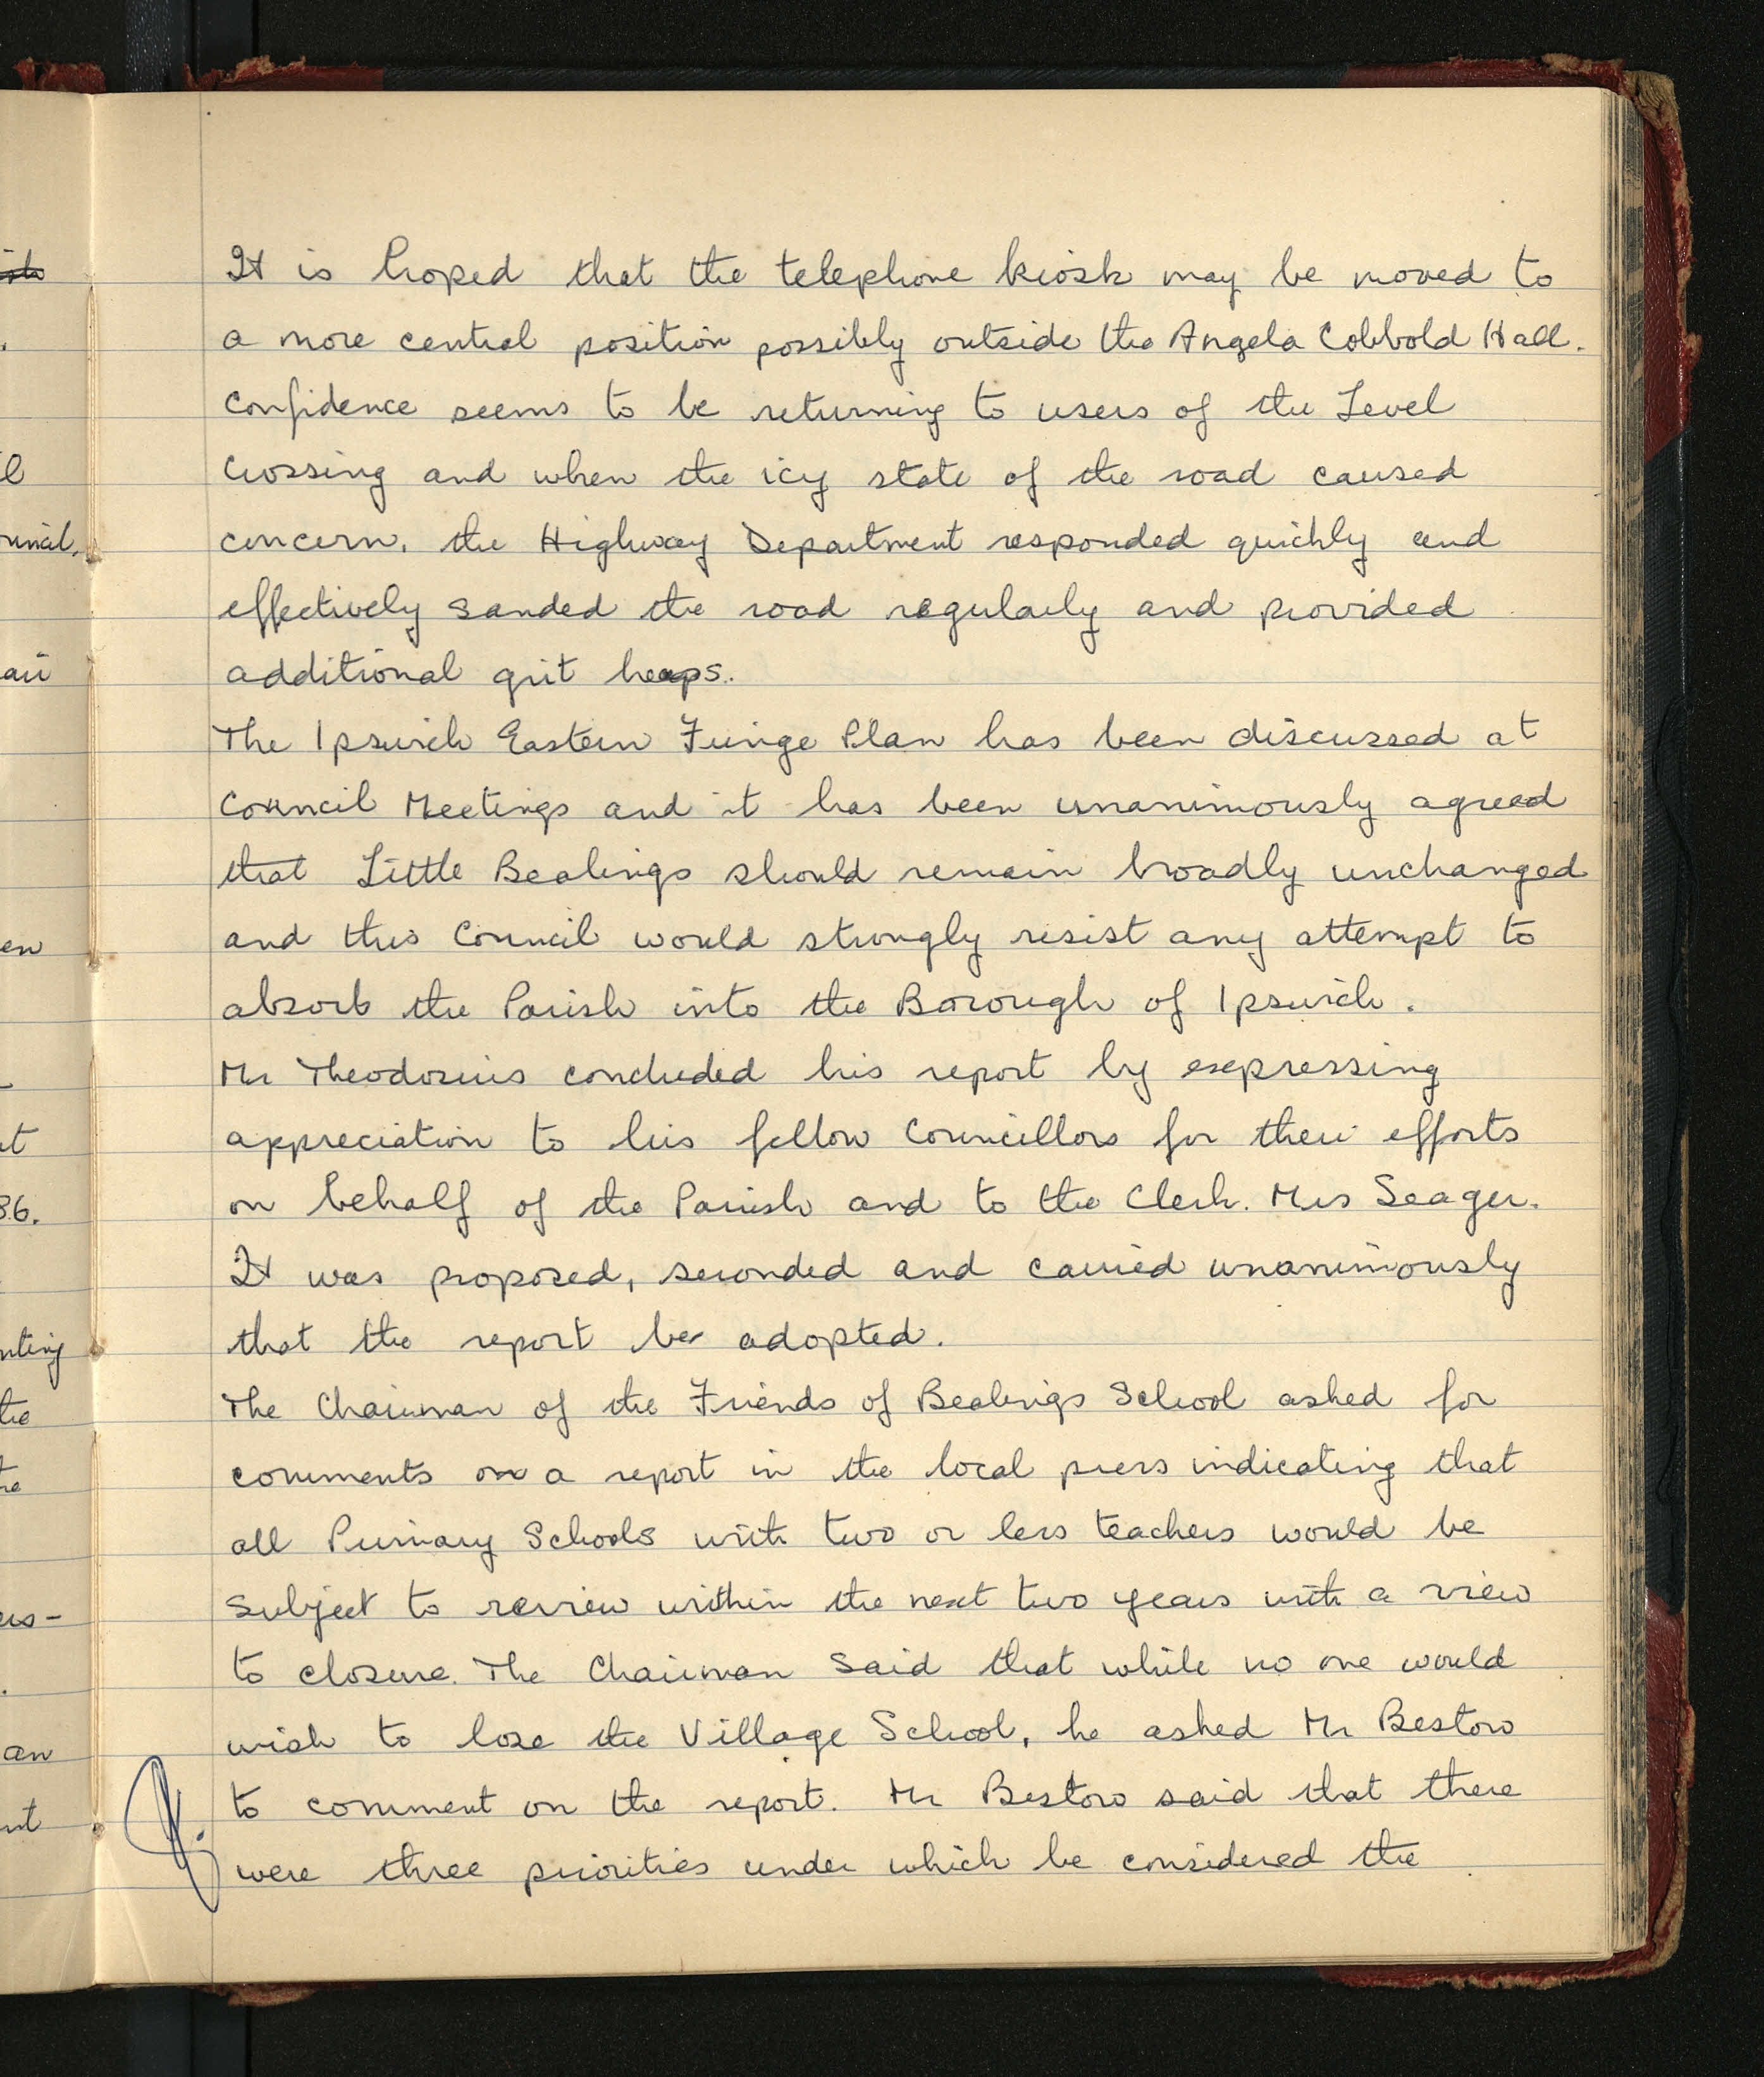 It is hoped that the telephone kiosk may be moved to
a more central position possibly outside the Angela Cobbold Hall.
Confidence seems to be returning to users of the Level
Crossing and when the icy state of the road caused
concern, the Highway Department responded quickly and
effectively sanded the road regularly and provided
additional grit heaps.
The Ipswich Eastern Fringe Plan has been discussed at
Council Meetings and it has been unanimously agreed
that Little Bealings should remain broadly unchanged
and this Council would strongly resist any attempt to
absorb the Parish into the Borough of Ipswich.
Mr Theodosius concluded his report by expressing
appreciation to his fellow Councillors for their efforts
on behalf of the Parish and to the Clerk. Mrs Seager.
It was proposed, seconded and carried unanimously
that the report be adopted.
The Chairman of the Friends of Bealings School asked for
comments on a report in the local press indicating that
all Primary Schools with two or less teachers would be
subject to review within the next two years with a view
to closure. The Chairman said that while no one would
wish to lose the Village School, he asked Mr Bestow
to comment on the report. Mr Bestow said that there
were three priorities under which he considered the